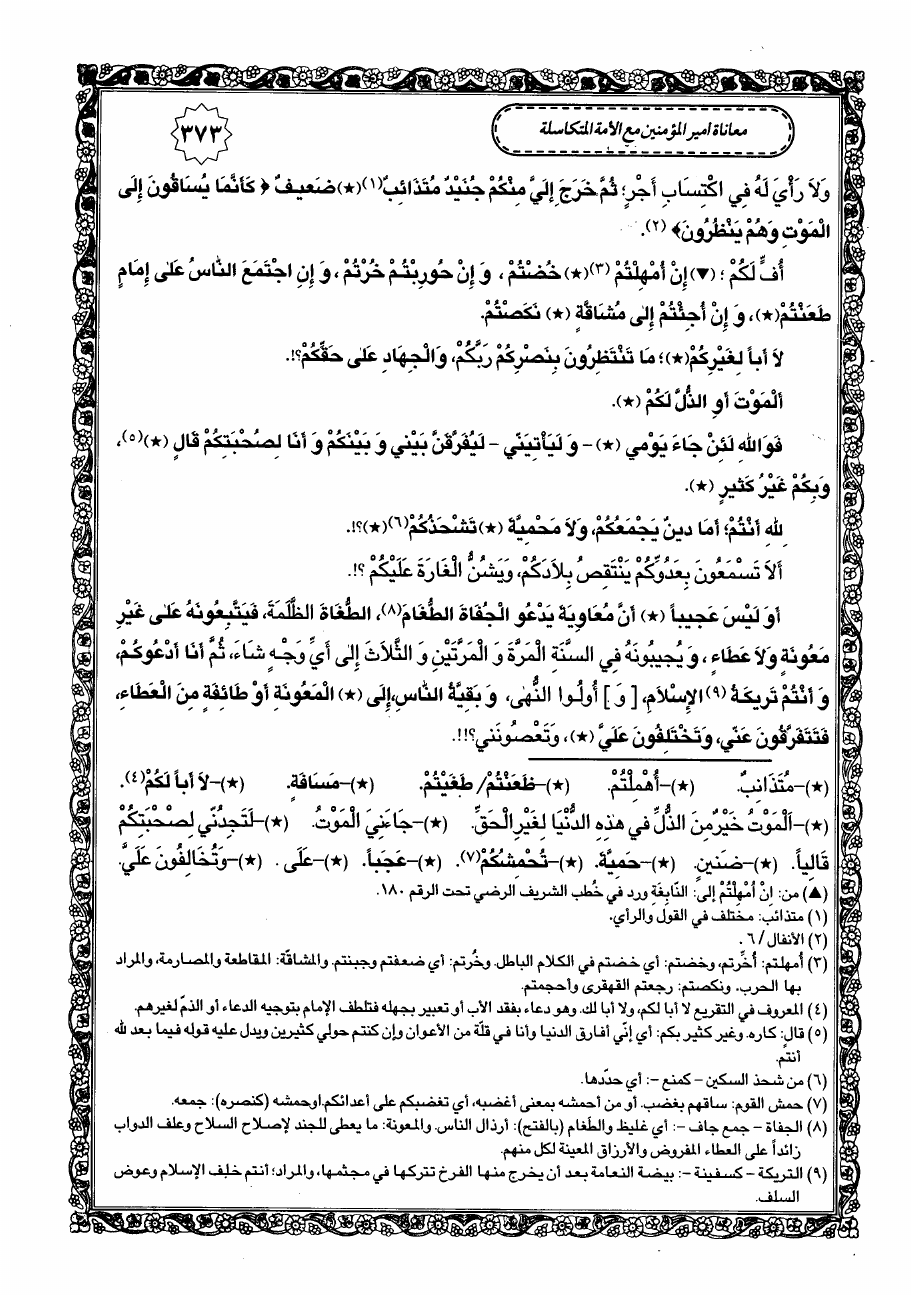 معاناة امير المؤمنين مع الأمة المتكاسلة
٣٧٣
وَلاَ رَأْيَ لَهُ فِي اكْتِسَابِ أَجْرٍ؛ ثُمَّ خَرَجَ إِلَيَّ مِنْكُمْ جُنَيْدٌ مُتَذَائِبٌ(١)(★)ضَعيفٌ ﴿ كَأَنَّمَا يُسَاقُونَ إِلَى
الْمَوْتِ وَهُمْ يَنْظُرُونَ﴾ (٢).
أُفٍّ لَكُمْ ؛ (▼) إِنْ أُمْهِلْتُمْ (٣)(★) خُضْتُمْ ، وَ إِنْ حُورِبْتُمْ خُرْتُمْ ، وَ إِنِ اجْتَمَعَ النَّاسُ عَلى إِمَامٍ
طَعَنْتُمْ(★)، وَ إِنْ أُجِئْتُمْ إِلى مُشَاقَّةٍ (★) نَكَصْتُمْ.
لاَ أَباً لِغَيْرِكُمْ(★)؛ مَا تَنْتَظِرُونَ بِنَصْرِكُمْ رَبَّكُمْ، وَالْجِهَادِ عَلى حَقِّكُمْ؟!.
أَلْمَوْتَ أَوِ الذُّلَّ لَكُمْ (★).
فَوَاللهِ لَئِنْ جَاءَ يَوْمي (★) – وَ لَيَأْتِيَنّي – لَيُفَرِّقَنَّ بَيْني وَ بَيْنَكُمْ وَ أَنَا لِصُحْبَتِكُمْ قَالٍ (★)(٥)،
وَبِكُمْ غَيْرُ كَثيرٍ (★).
للهِ أَنْتُمْ؛ أَمَا دينٌ يَجْمَعُكُمْ، وَلاَ مَحْمِيَّةٌ (★) تَشْحَذُكُمْ(٦)(★)؟!.
أَلاَ تَسْمَعُونَ بِعَدُوِّكُمْ يَنْتَقِصُ بِلاَدَكُمْ، وَيَشُنُّ الْغَارَةَ عَلَيْكُمْ ؟!.
أَوَ لَيْسَ عَجيباً (★) أَنَّ مُعَاوِيَةَ يَدْعُو الْجُفَاةَ الطَّغَامَ(٨)، الطُّغَاةَ الظَّلَمَةَ، فَيَتَّبِعُونَهُ عَلى غَيْرِ
مَعُونَةٍ وَلاَ عَطَاءٍ ، وَ يُجيبُونَهُ فِي السَّنَةِ الْمَرَّةَ وَ الْمَرَّتَيْنِ وَ الثَّلاَثَ إِلى أَيِّ وَجْهٍ شَاءَ، ثُمَّ أَنَا أَدْعُوكُمْ،
وَ أَنْتُمْ تَريكَةُ (٩) الإِسْلاَمِ، [ وَ ] أُولُوا النُّهى، وَ بَقِيَّةُ النَّاسِ، إِلَى (★) الْمَعُونَةِ أَوْ طَائِفَةٍ مِنَ الْعَطَاءِ،
فَتَتَفَرَّقُونَ عَنّي، وَتَخْتَلِفُونَ عَلَيَّ (★)، وَتَعْصُونَني؟!!.
(★)–مُتَذَانِبٌ. (★)–أُهْمِلْتُمْ. (★)–ظَعَنْتُمْ/ طَغَيْتُمْ. (★)–مَسَافَةٍ. (★)–لاَ أَباً لَكُمْ(٤).
(★)–اَلْمَوْتُ خَيْرٌ مِنَ الذُّلِّ في هذِهِ الدُّنْيَا لِغَيْرِ الْحَقِّ. (★)–جَاءَنِيَ الْمَوْتُ. (★)–لَتَجِدُنّي لِصُحْبَتِكُمْ
قَالِياً. (★)–ضَنينٍ. (★)–حَمِيَّةٌ. (★)–تُحْمِشُكُمْ(٧). (★)–عَجَباً. (★)–عَلَى . (★)–وَتُخَالِفُونَ عَلَيَّ.
(▲) من: إِنْ أُمْهِلْتُمْ إلى: النَّابِغَةِ ورد في خُطب الشريف الرضي تحت الرقم ١٨٠.
(١) متذائب: مختلف في القول والرأي.
(٢) الأنفال / ٦ .
(٣) أُمهلتم: أُخِّرتم، وخضتم: أي خضتم في الكلام الباطل. وخُرتم: أي ضعفتم وجبنتم. والمشاقّة: المقاطعة والمصارمة، والمراد
بها الحرب. ونكصتم: رجعتم القهقرى وأحجمتم.
(٤) المعروف في التقريع لا أبا لكم، ولا أبا لك. وهو دعاء بفقد الأب أو تعبير بجهله فتلطف الإمام بتوجيه الدعاء أو الذمّ لغيرهم.
(٥) قالٍ: كاره. وغير كثير بكم: أي إنّي أفارق الدنيا وأنا في قلّة من الأعوان وإن كنتم حولي كثيرين ويدل عليه قوله فيما بعد لله
أنتم.
(٦) من شحذ السكين – كمنع –: أي حدّدها.
(٧) حمش القوم: ساقهم بغضب. أو من أحمشه بمعنى أغضبه، أي تغضبكم على أعدائكم.اوحمشه (كنصره): جمعه.
(٨) الجفاة – جمع جاف –: أي غليظ والطَّغام (بالفتح): أرذال الناس. والمعونة: ما يعطى للجند لإصلاح السلاح وعلف الدواب
زائداً على العطاء المفروض والأرزاق المعينة لكل منهم.
(٩) التريكة – كسفينة –: بيضة النعامة بعد أن يخرج منها الفرخ تتركها في مجثمها، والمراد؛ أنتم خلف الإسلام وعوض
السلف.